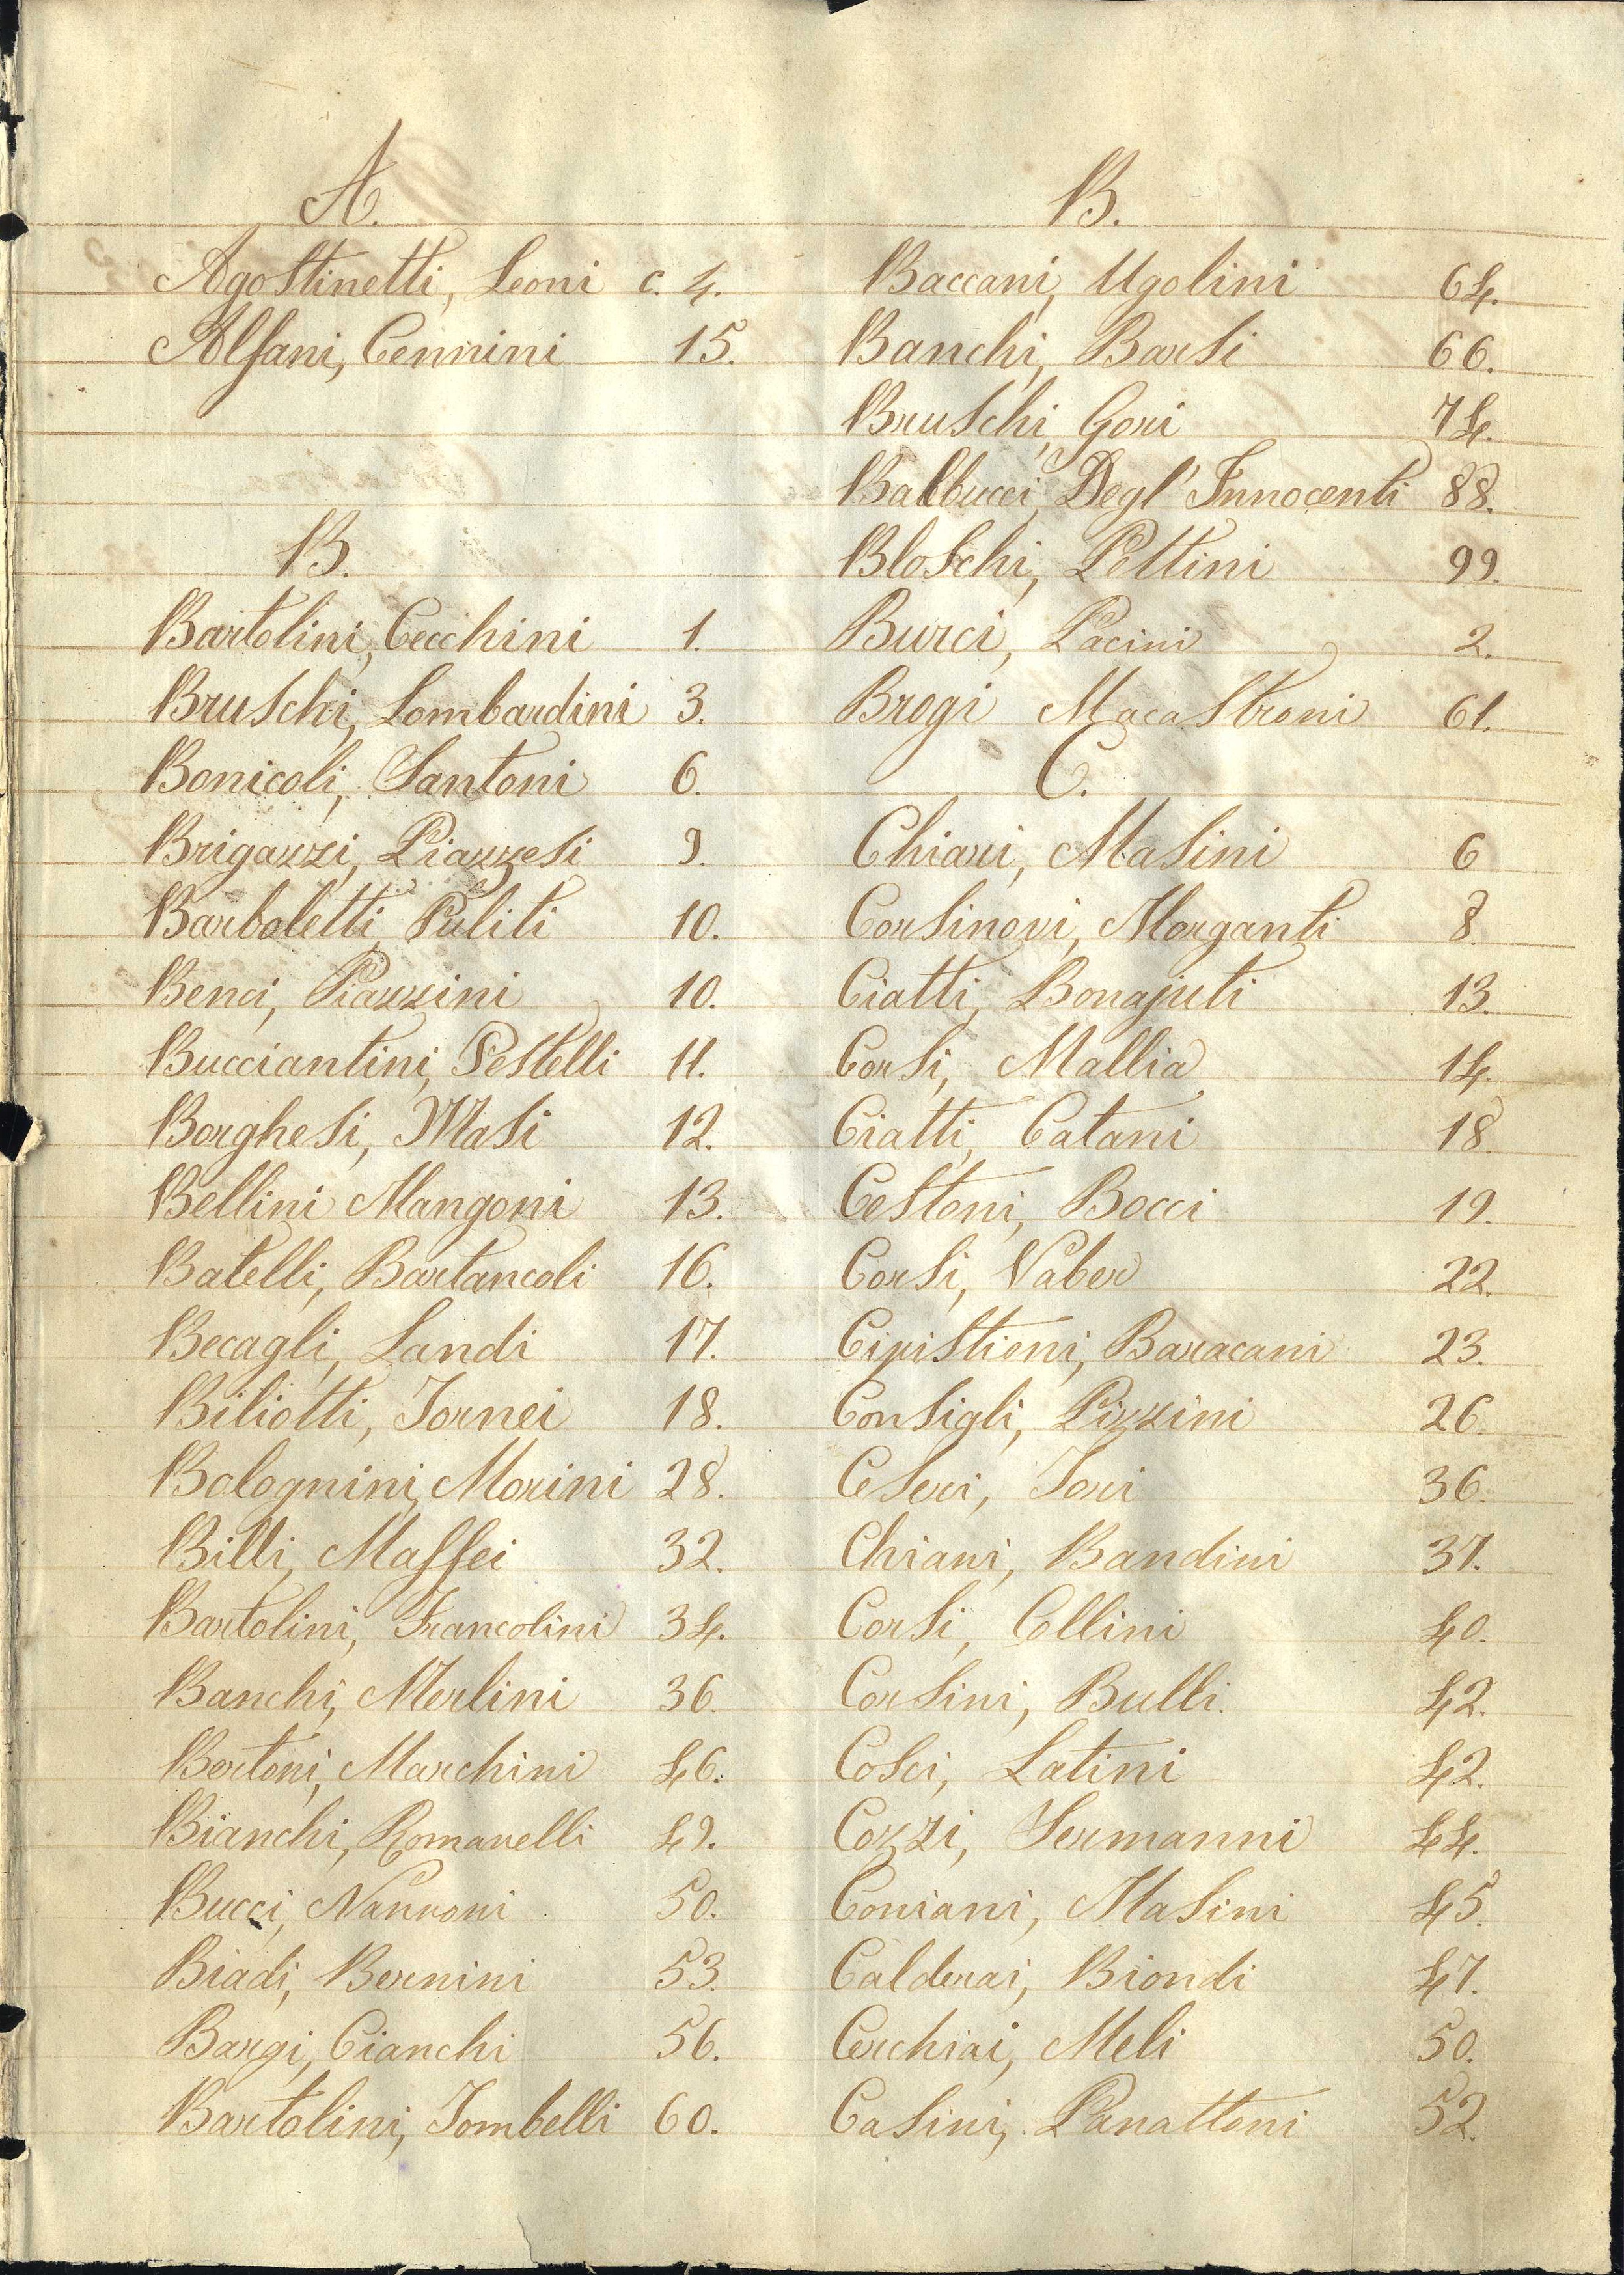 A.
Agostinetti, Leoni c. 4.
Alfani, Cennini 15.
B.
Bartolini, Cecchini 1.
Bruschi, Lombardini 3.
Bonicoli, Santoni 6.
Brigazzi, Piazzesi 9.
Barboletti Puliti 10.
Benci, Piazzini 10.
Bucciantini, Pestelli 11.
Borghesi, Masi 12.
Bellini Mangoni 13.
Batelli, Bartancoli 16.
Becagli, Landi 17.
Biliotti, Tornei 18.
Bolognini, Morini 28.
Billi, Maffei 32.
Bartolini, Francolini 34.
Banchi, Merlini 36.
Bertoni, Marchini 46.
Bianchi, Romanelli 49.
Bucci, Nannoni 50.
Biadi, Bernini 53.
Bargi, Cianchi 56.
Bartolini, Tombelli 60.
B.
Baccani, Ugolini 64.
Banchi, Barsi 66.
Bruschi, Gori 74.
Balbucci, Degl' Innocenti 88.
Bloschi, Pettini 99.
Burci, Pacini 2.
Brogi Macastroni 61.
C.
Chiari, Masini 6
Corsinovi, Morganti 8.
Ciatti, Bonajuti 13.
Corsi, Mallia 14.
Ciatti, Catani 18.
Cestoni, Bocci 19.
Corsi, Vaber 22.
Cipistioni, Baracani 23.
Consigli, Pizzini 26.
Ceseri, Tori 36.
Chiani, Bandini 37.
Corsi, Collini 40.
Corsini, Bulli. 42.
Cosci, Latini 42.
Cozzi, Sermanni 44.
Coniani, Masini 45.
Calderai, Biondi 47.
Cerchiai, Meli 50.
Casini, Panattoni 52.